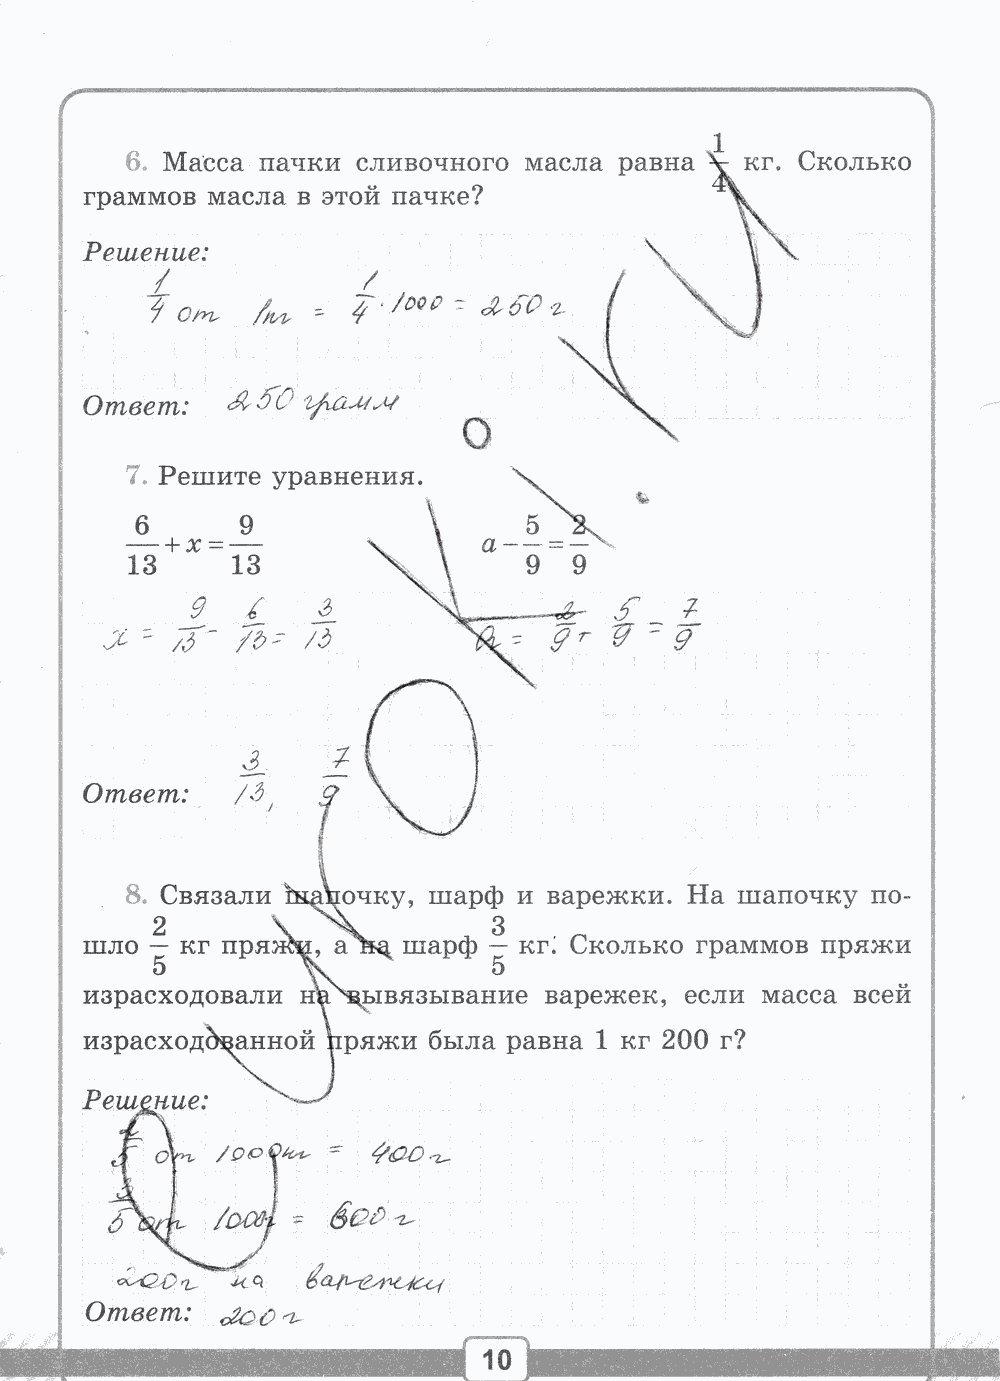 6. Масса пачки сливочного масла равна 1/4 кг. Сколько
граммов масла в этой пачке?
Решение:
1/4 от 1кг = 1/4 · 1000 = 250 г
Ответ: 250 грамм
7. Решите уравнения.
6/13 + x = 9/13 a − 5/9 = 2/9
x = 9/13 − 6/13 = 3/13 a = 2/9 + 5/9 = 7/9
Ответ: 3/13, 7/9
8. Связали шапочку, шарф и варежки. На шапочку по-
шло 2/5 кг пряжи, а на шарф 3/5 кг. Сколько граммов пряжи
израсходовали на вывязывание варежек, если масса всей
израсходованной пряжи была равна 1 кг 200 г?
Решение:
2/5 от 1000кг = 400 г
3/5 от 1000г = 600 г
200г на варежки
Ответ: 200г
10
uroki.ru